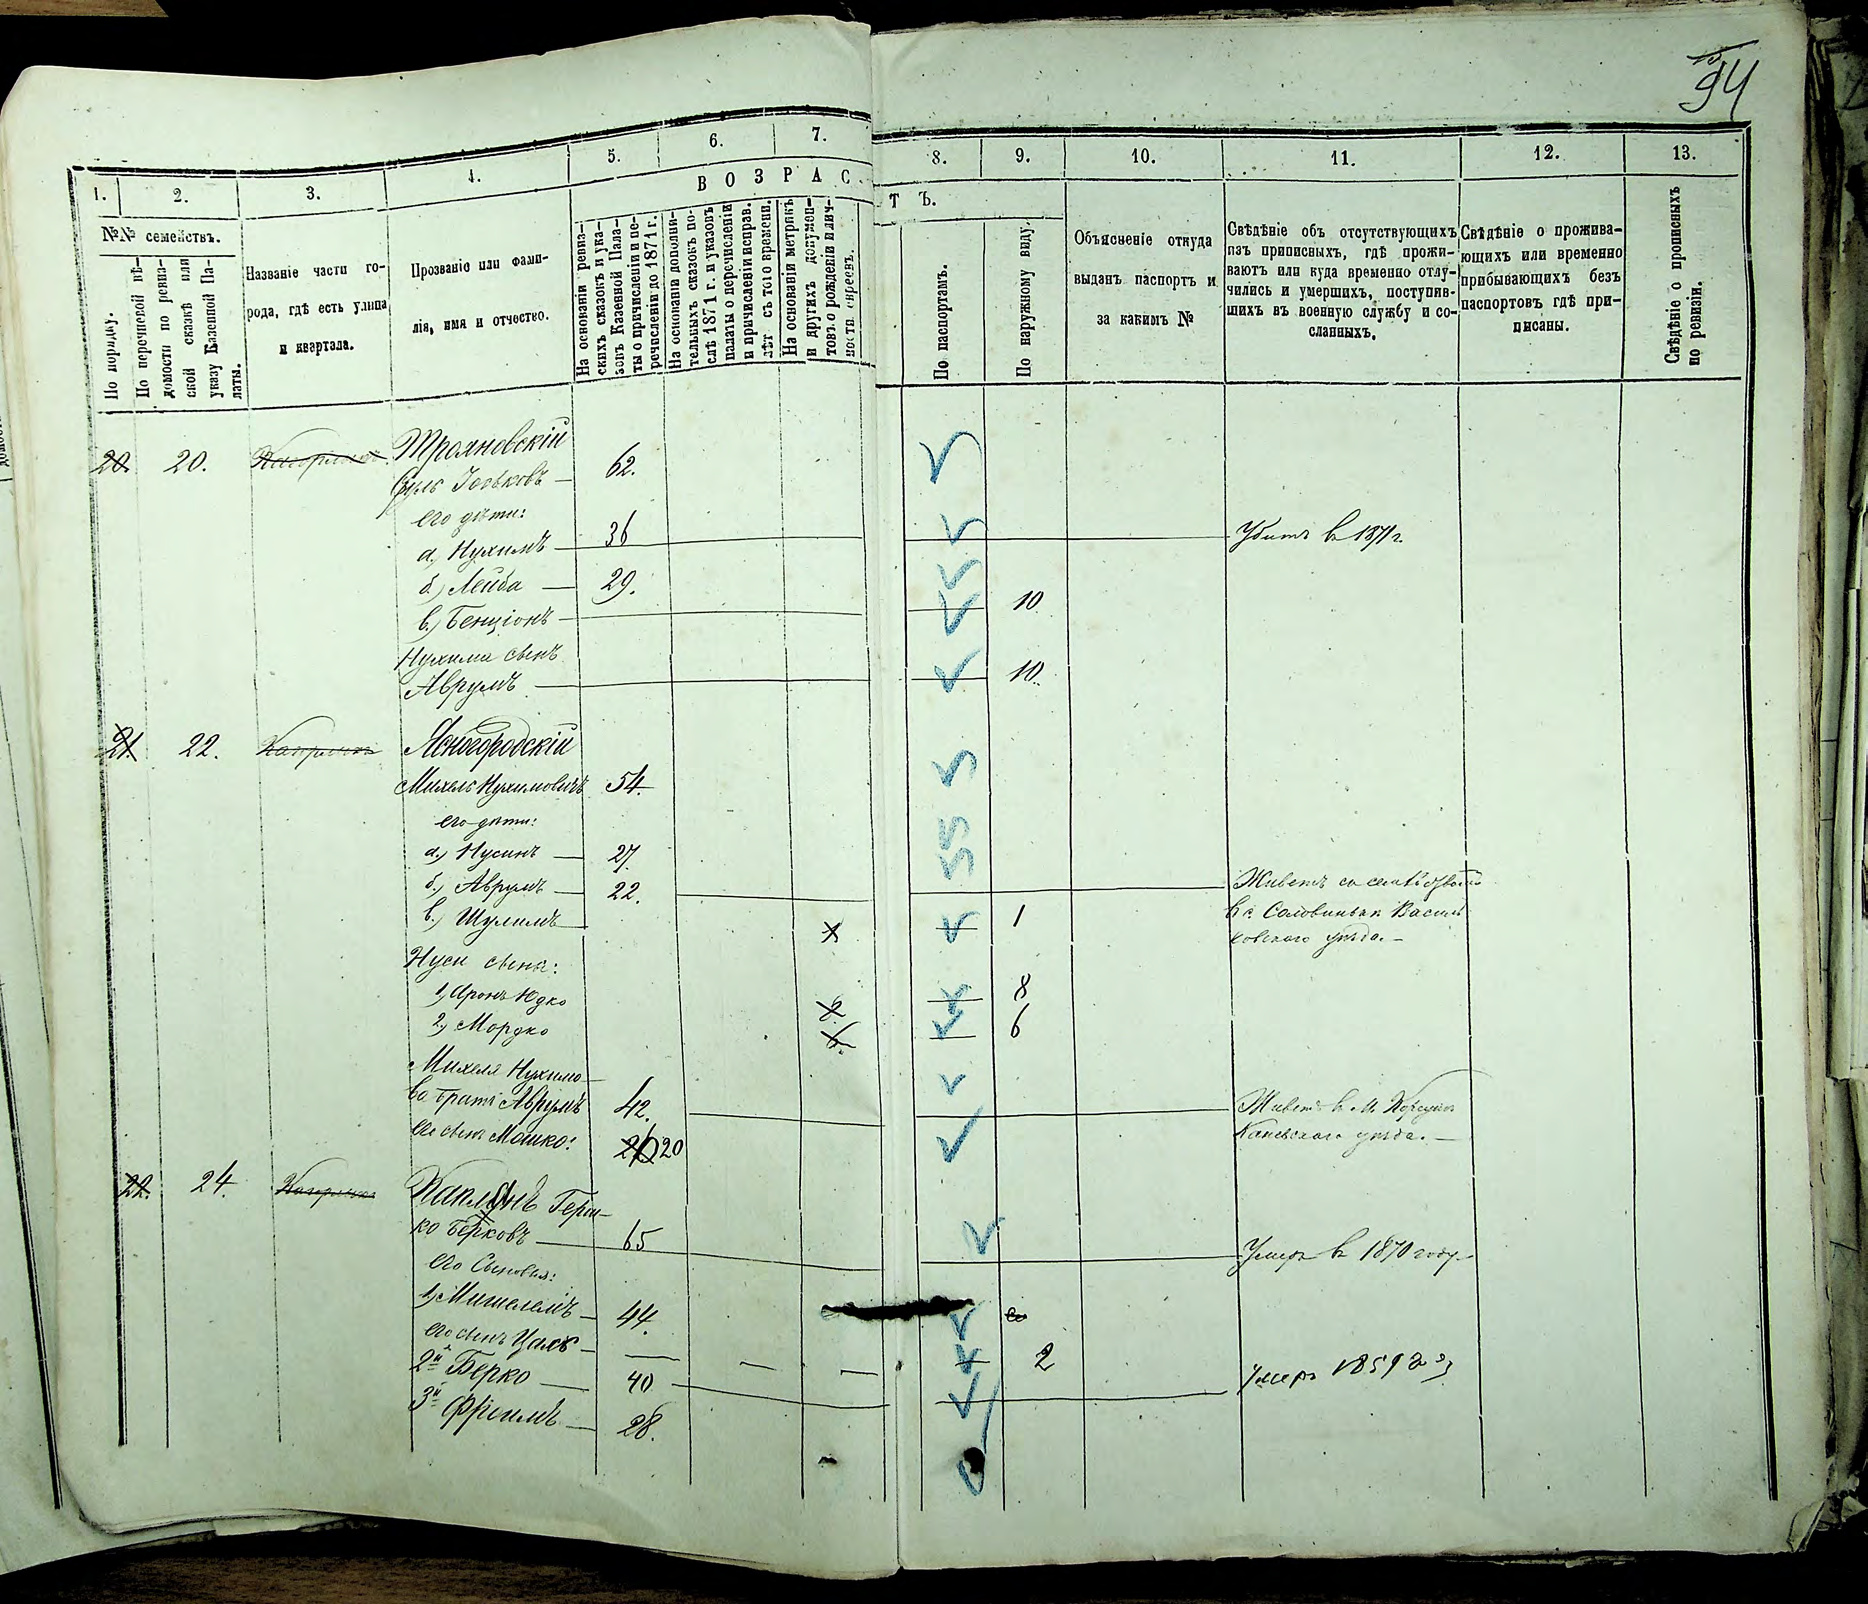 94
1.
2.
3.
4.
5.
6.
7.
8.
9.
10.
11.
12.
13.
ВОЗРАС
ТЪ.
№№ семействъ.
По порядку.
По перечневой вѣ-
домости по ревиз-
ской сказкѣ или
указу Казенной Па-
латы.
Названіе части го-
рода, гдѣ есть улица
и квартала.
Прозваніе или фами-
лія, имя и отчество.
На основаніи ревиз-
скихъ сказокъ и ука-
зовъ Казенной Пала-
ты о причисленіи и пе-
речисленіи до 1871 г.
На основаніи дополни-
тельныхъ сказокъ по-
слѣ 1871 г. и указовъ
палаты о перечисленіи
и причисленіи исправ.
лѣт съ того времени.
На основаніи метрикъ
и другихъ докумен-
товъ о рожденіи и лич-
ности евреевъ.
По паспортамъ.
По наружному виду.
Объясненіе откуда
выданъ паспортъ и
за какимъ №
Свѣдѣніе объ отсутствующихъ
изъ приписныхъ, гдѣ прожи-
ваютъ или куда временно отлу-
чились и умершихъ, поступив-
шихъ въ военную службу и со-
сланныхъ.
Свѣдѣніе о прожива-
ющихъ или временно
прибывающихъ безъ
паспортовъ гдѣ при-
писаны.
Свѣдѣніе о прописныхъ
по ревизіи.
20. 20. Трояновскій
Іоськовъ — 62.
его дѣти:
а) Нухимъ — 36 Убитъ въ 1871 г.
б) Лейба — 29.
в) Бенціонъ — 10
Нухима сынъ
Аврумъ — 10.
21. 22. Ясногородскій
Михель Нухимовичъ 54.
его дѣти:
а) Нусинъ — 27.
б) Аврумъ — 22. Живетъ
в) Шулимъ 1 въ с. Василь
ковскаго уѣзда. —
Нуси сыны:
1) Аронъ Юдко 8
2) Мордко 6
Михеля Нухимо-
ва братъ Аврумъ 42. Живетъ въ м. Корсунь
его сынъ Мошко: 20 Каневскаго уѣзда. —
22. 24. Капланъ Герш-
ко Берковъ — 65 Умеръ въ 1870 году.
его Сыновья:
1) — 44.
его сынъ — 2
2й Берко — 40 Умеръ 1859
3й Фроимъ — 28.